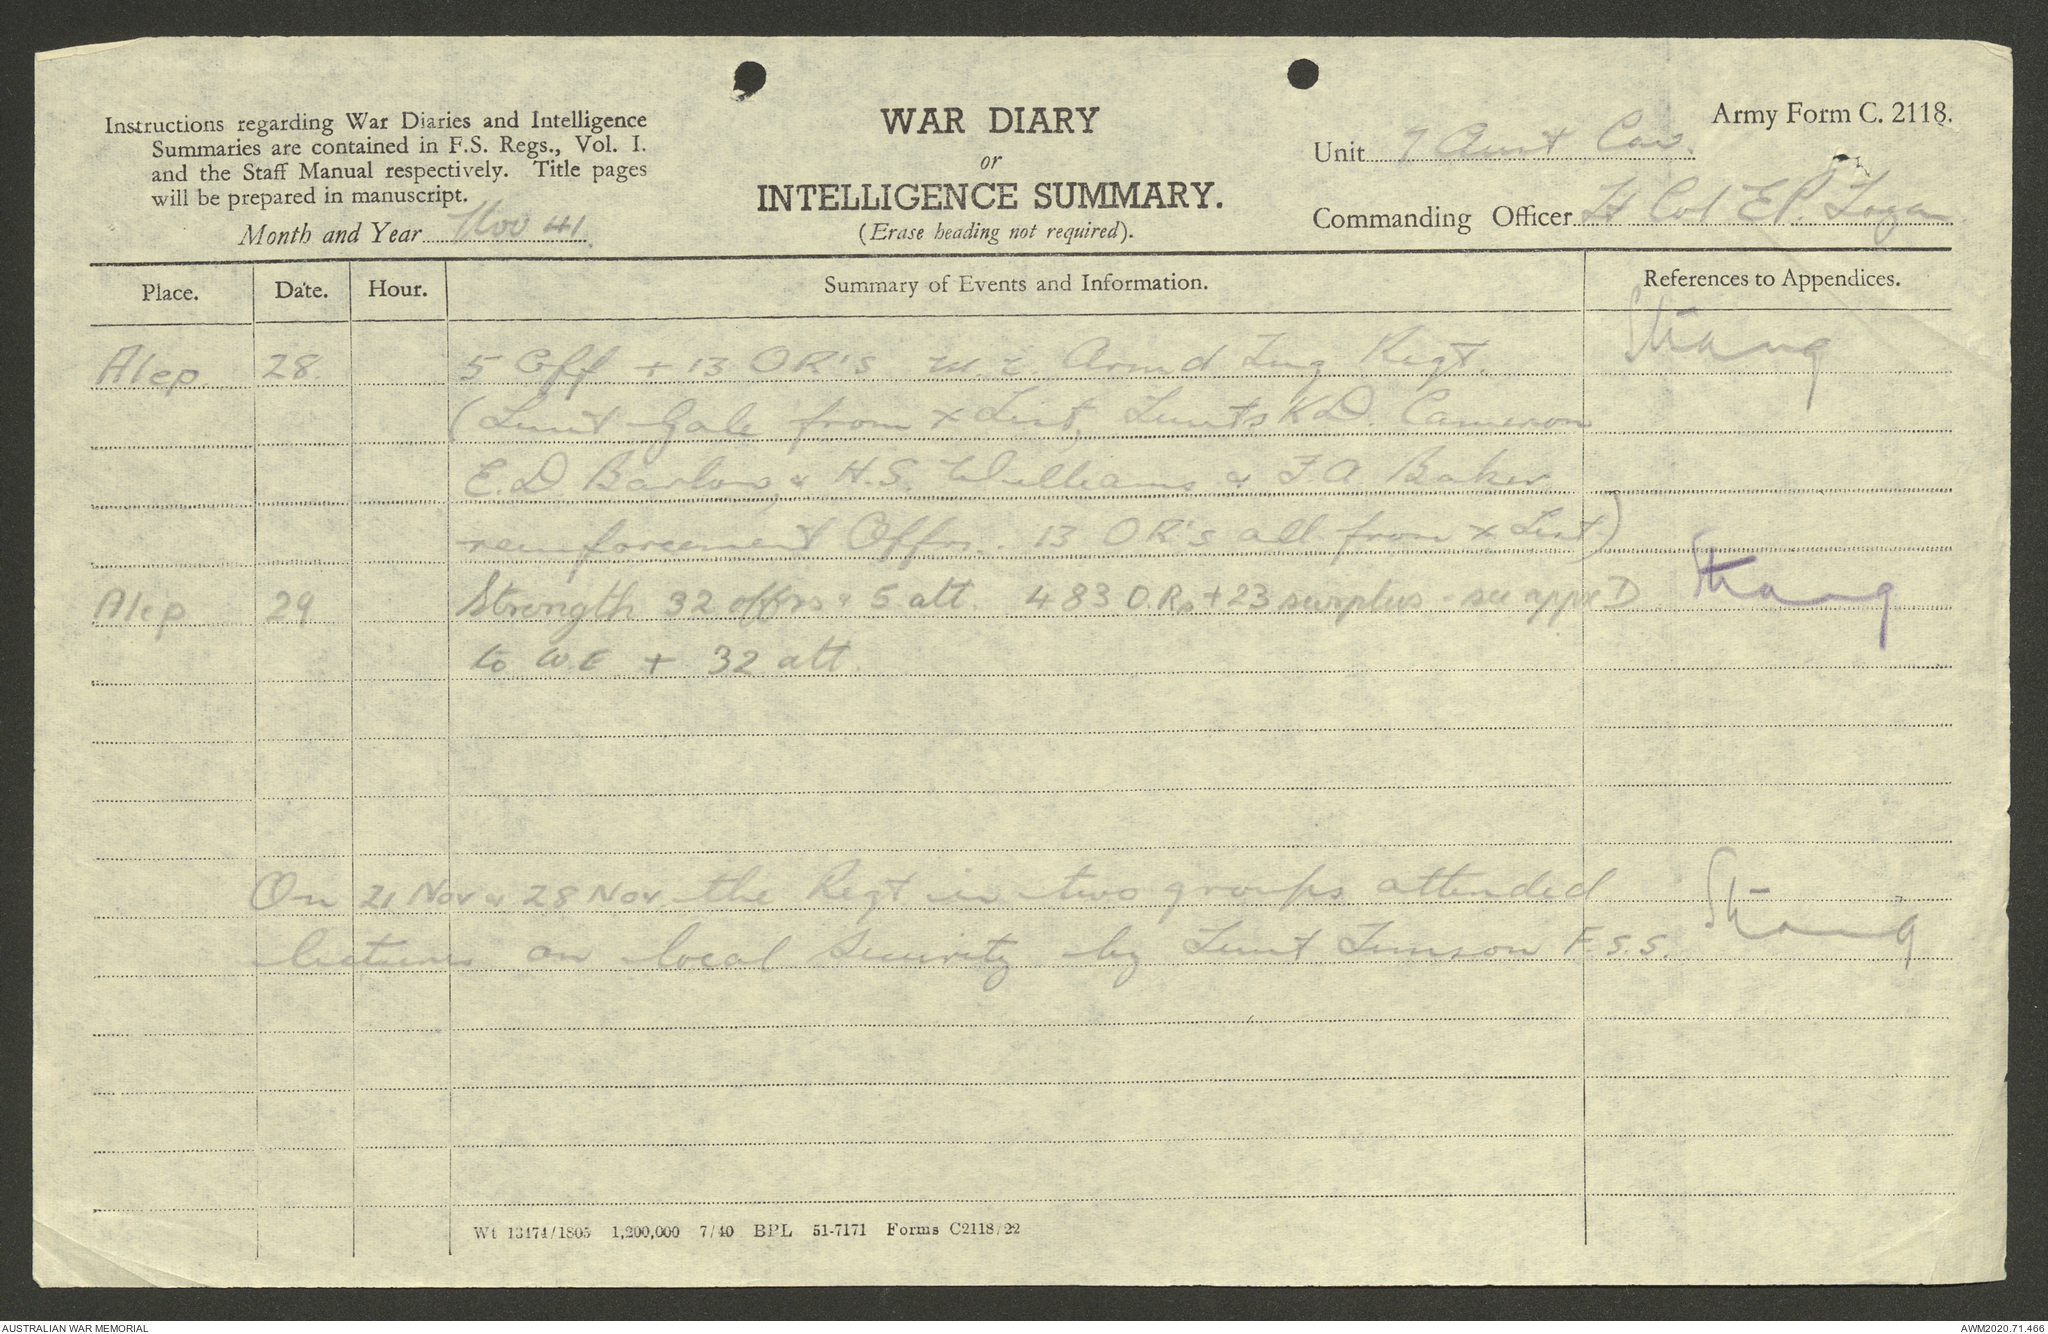 Army Form C. 2118.
Instructions regarding War Diaries and Intelligence
Summaries are contained in F.S. Regs., Vol. I.
and the Staff Manual respectively. Title pages
will be prepared in manuscript.
Month and Year Nov 41.
WAR DIARY
or
INTELLIGENCE SUMMARY.
(Erase heading not required).
Unit 7 Aust Cav.
Commanding Officer Lt Col E.P. Logan
Place. Date. Hour. Summary of Events and Information. References to Appendices.
Alep 28 5 Off + 13 OR's M.E. Armd Trng Regt.
(Lieut Gale from x List, Lieuts K.D. Cameron
E.D. Barlow, & H.S. Williams & F.A. Baker
reinforcement Offrs. 13 OR's all from x List)
Alep 29 Strength 32 offrs & 5 att. 483 O.Rs + 23 surplus - see appx D
to W.E + 32 att.
On 21 Nov & 28 Nov the Regt in two groups attended
lectures on local Security by Lieut F.S.S.
Wt 13474/1805 1,200,000 7/40 BPL 51-7171 Forms C2118/22
AUSTRALIAN WAR MEMORIAL
AWM2020.71.466